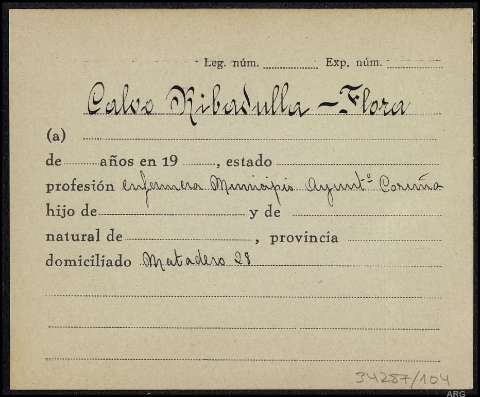 Leg. núm. Exp. núm.
Calvo Ribadulla - Flora
(a)
de años en 19 , estado
profesión enfermera Municipio Ayuntº Coruña
hijo de y de
natural de , provincia
domiciliado Matadero 28
34287/104
ARG